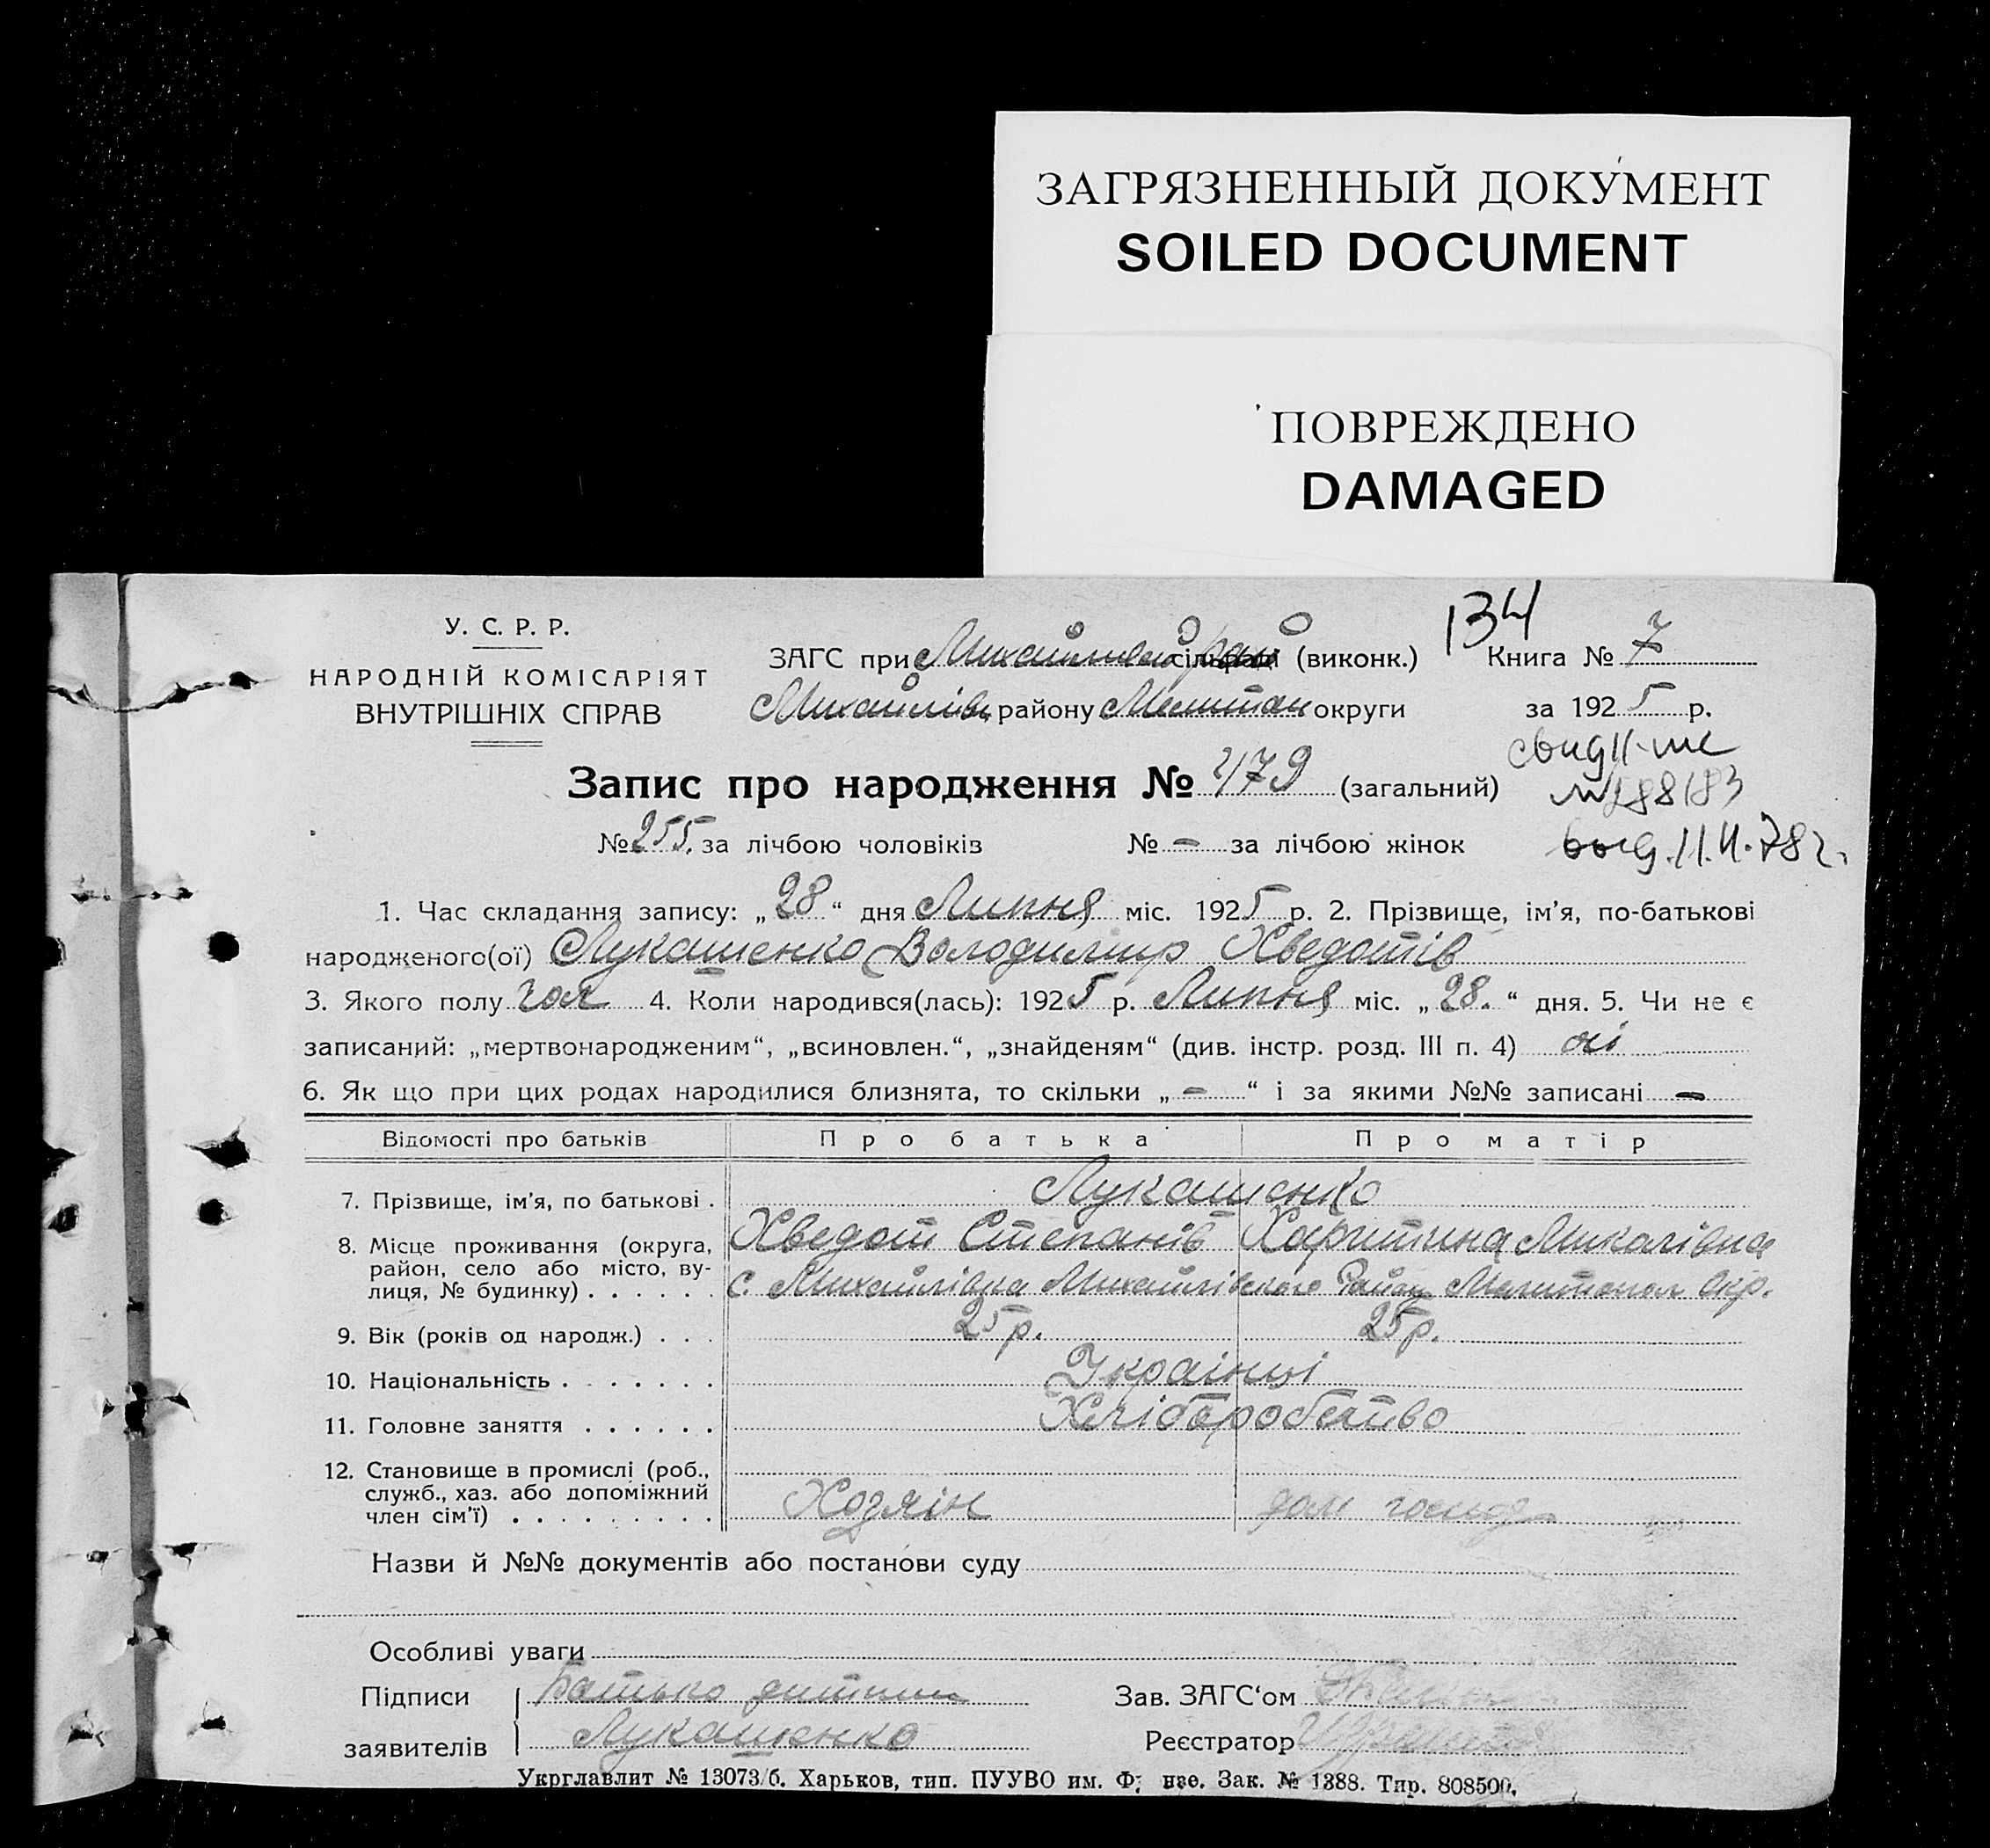 ЗАГРЯЗНЕННЫЙ ДОКУМЕНТ
SOILED DOCUMENT
ПОВРЕЖДЕНО
DAMAGED
134
У. С. Р. Р.
НАРОДНІЙ КОМІСАРІЯТ
ВНУТРІШНІХ СПРАВ
ЗАГС при сільраді (виконк.) Книга № 7
Михайлівц району Мелитоп округи за 1925 р.
Запис про народження № 479 (загальний)
№ 255. за лічбою чоловіків № - за лічбою жінок
выд. 11.II.78 г.
1. Час складання запису: „28“ дня Липня міс. 1925 р. 2. Прізвище, ім'я, по-батькові
народженого(ої) Лукашенко Володимир Хведотів
3. Якого полу чол 4. Коли народився(лась): 1925 р. Липня міс. „28.“ дня. 5. Чи не є
записаний: „мертвонародженим“, „всиновлен.“, „знайденям“ (див. інстр. розд. III п. 4) ні
6. Як що при цих родах народилися близнята, то скільки „-“ і за якими №№ записані -
Відомості про батьків Про батька Про матір
7. Прізвище, ім'я, по батькові . Лукашенко
8. Місце проживання (округа, Хведот Степанів Харитина Миколівна
район, село або місто, ву-
лиця, № будинку) . . . . . . С. Михайлівка Михайлівського Району Мелитопол Окр.
9. Вік (років од народж.) . . . 25 р. 25 р.
10. Національність . . . . . . . Українці
11. Головне заняття . . . . . . Хліборобство
12. Становище в промислі (роб.,
служб., хаз. або допоміжний
член сім'ї) . . . . . . . . . Хозяін дом господ
Назви й №№ документів або постанови суду
Особливі уваги
Підписи Батько дитини Зав. ЗАГС'ом
заявителів Лукашенко Реєстратор
Укрглавлит № 13073/б. Харьков, тип. ПУУВО им. Зак. № 1388. Тир. 808500.